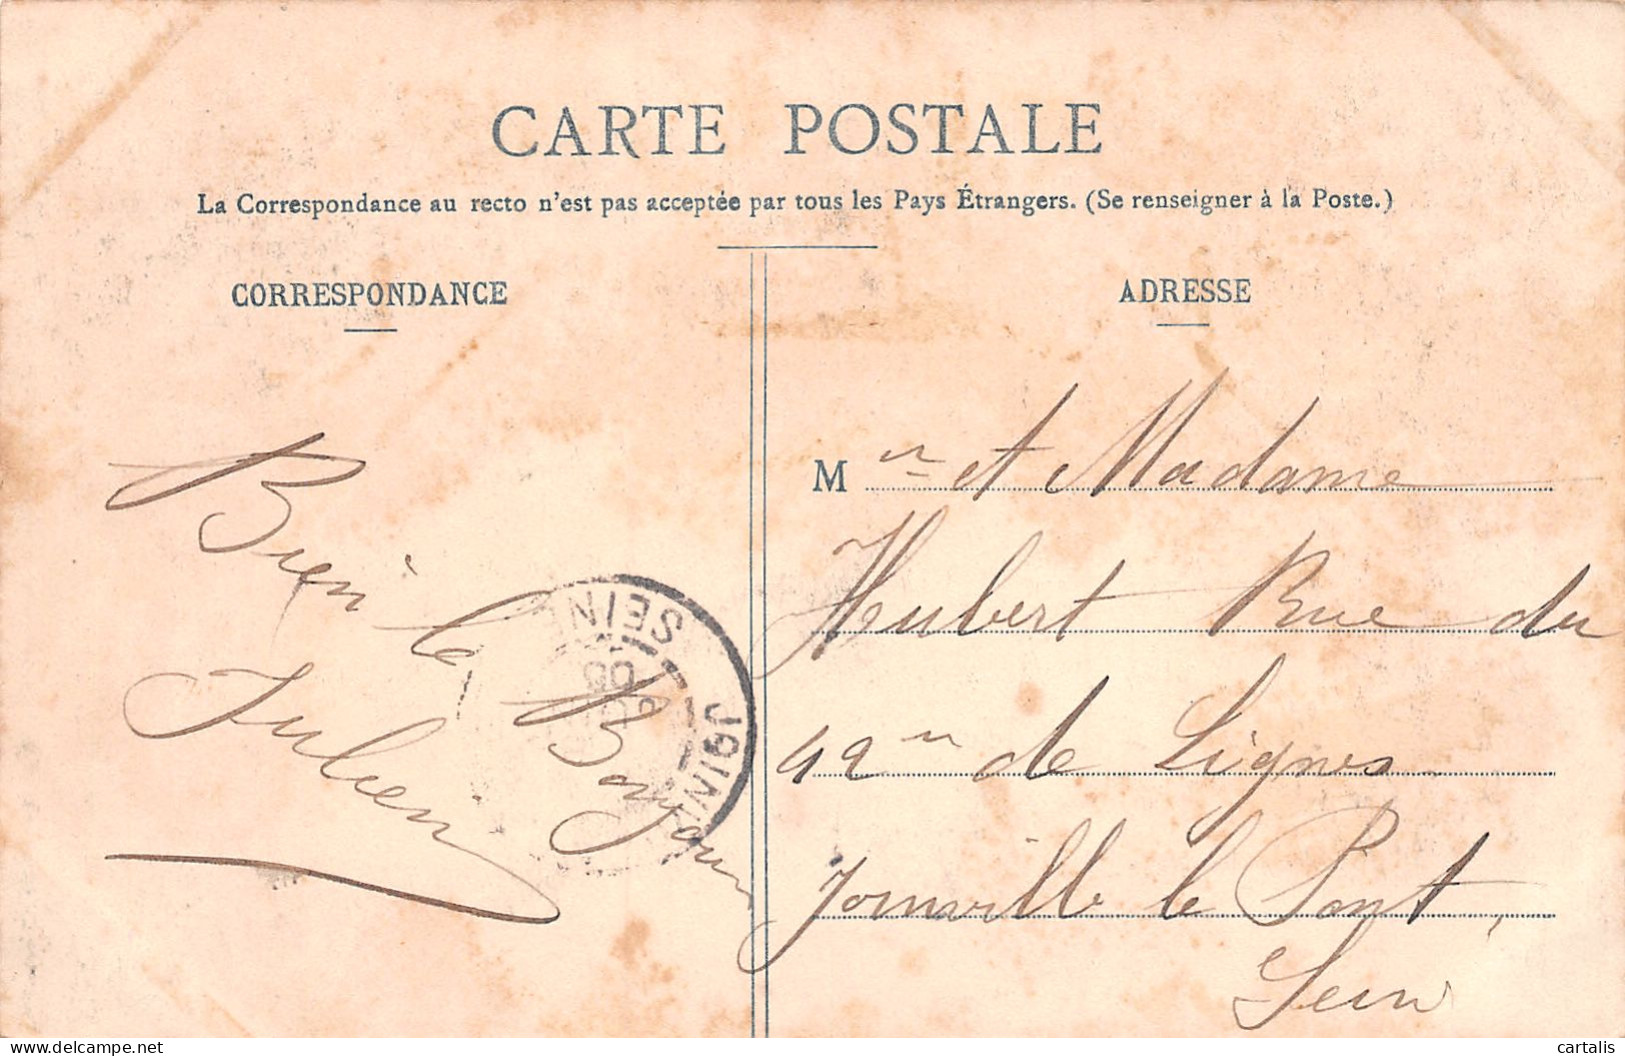 CARTE POSTALE
La Correspondance au recto n'est pas acceptée par tous les Pays Étrangers. (Se renseigner à la Poste.)
CORRESPONDANCE
Bien le Bonjour
Julien
SEIN
JOINV
ADRESSE
M r et Madame
Hubert Rue du
42 de Lignes
Joinville le Pont,
Seine
cartalis
delcampe.net